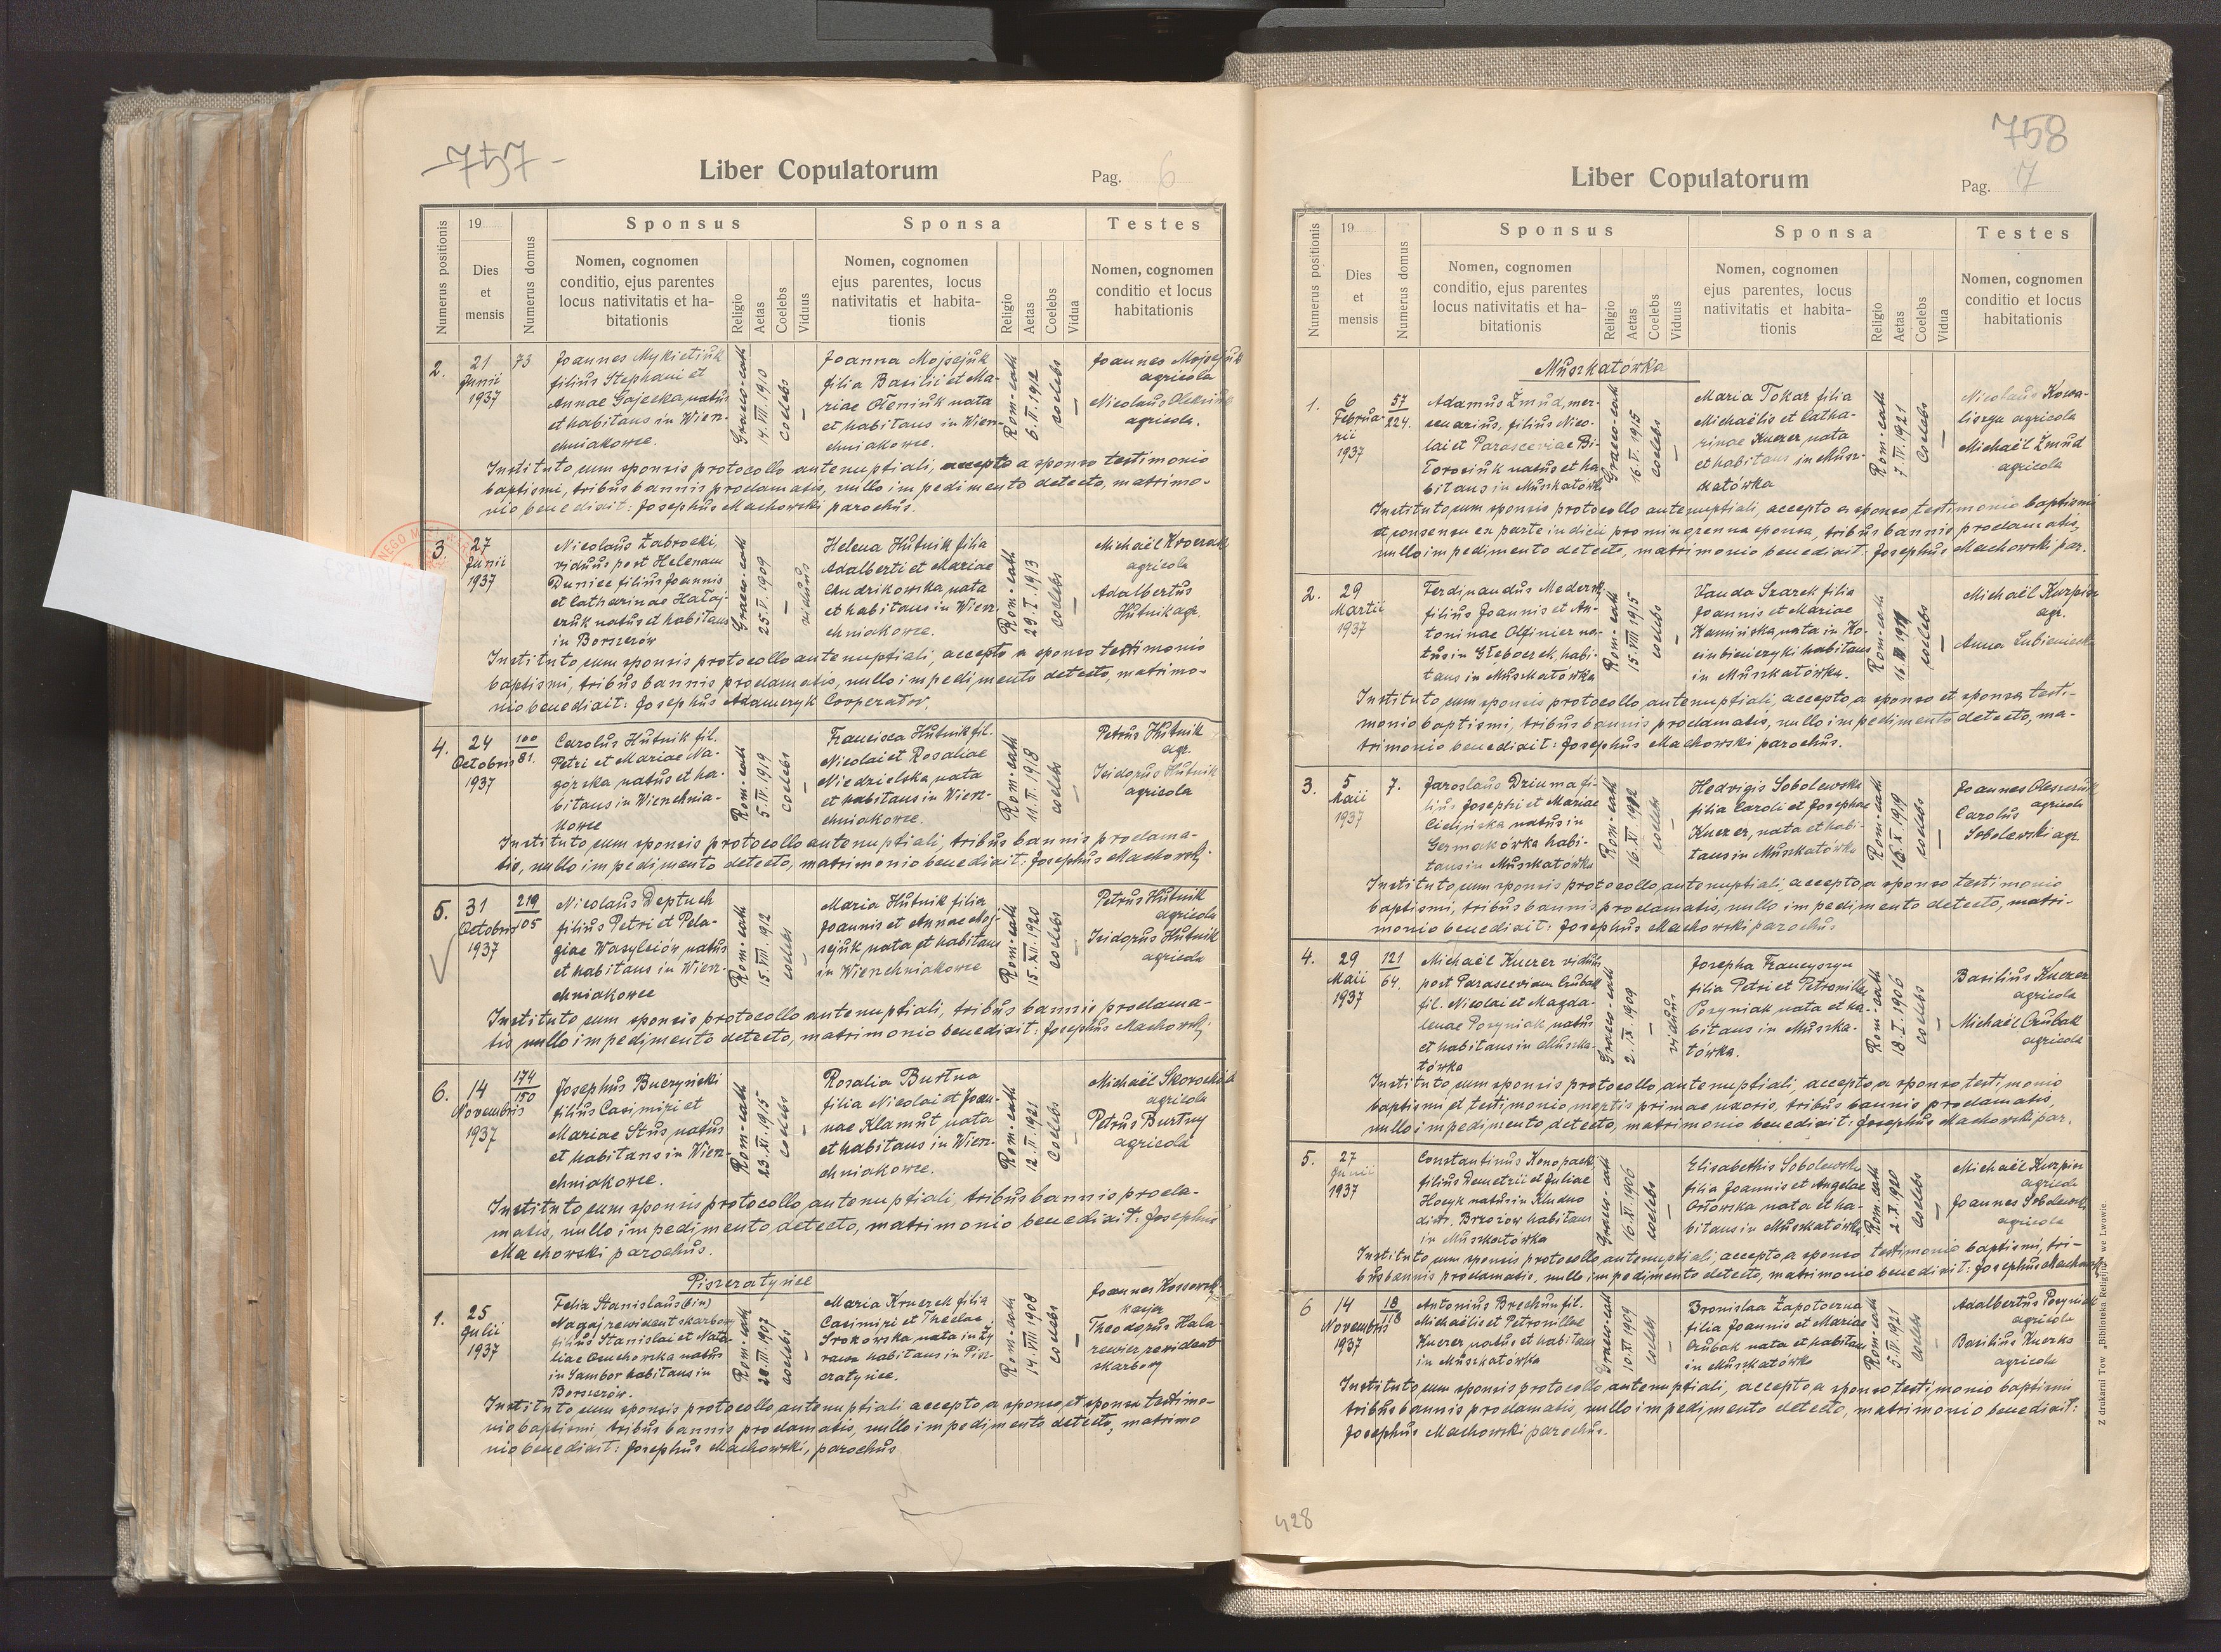 -757-
Liber Copulatorum
Pag. 6
Numerus positionis
19
Dies
et
mensis
Numerus domus
Sponsus
Nomen, cognomen
conditio, ejus parentes
locus nativitatis et ha-
bitationis
Religio
Aetas
Coelebs
Viduus
Sponsa
Nomen, cognomen
ejus parentes, locus
nativitatis et habita-
tionis
Religio
Aetas
Coelebs
Vidua
Testes
Nomen, cognomen
conditio et locus
habitationis
2.
21
Junii
1937
73
Joannes Mykietiuk
filius Stephani et
Annae Gajecka, natus
et habitans in Wierz-
chniakowce.
Graeco-cath
14.III.1910
coelebs
—
Joanna Mojsejuk
filia Basilii et Ma-
riae Oleniuk nata
et habitans in Wierz-
chniakowce.
Rom-cath
6.II.1912
coelebs
—
Joannes Mojsejuk
agricola
Nicolaus
agricola.
Instituto cum sponsis protocollo antenuptiali, accepto a sponso testimonio
baptismi, tribus bannis proclamatis, nullo impedimento detecto, matrimo-
nio benedixit: Josephus Machowski parochus.
3
27
Junii
1937
Nicolaus Zabrocki,
viduus post Helenam
Duniec filius Joannis
et Catharinae Hałaj-
czuk natus et habitans
in Borszczów
Graeco-cath
25.V.1909
—
viduus
Helena Hutnik filia
Adalberti et Mariae
Andrikowska nata
et habitans in Wierz-
chniakowce.
Rom-cath
29.I.1913
coelebs
—
Michaël
agricola
Adalbertus
Hutnik agr.
Instituto cum sponsis protocollo antenuptiali, accepto a sponso testimonio
baptismi, tribus bannis proclamatis, nullo impedimento detecto, matrimo-
nio benedixit: Josephus Adamczyk Cooperator.
4.
24
Octobris
1937
100
81.
Carolus Hutnik fil.
Petri et Mariae Na-
górska natus et ha-
bitans in Wierzchnia-
kowce
Rom-cath
5.IV.1919
coelebs
—
Francisca Hutnik fil.
Nicolai et Rosaliae
Niedzielska nata
et habitans in Wierz-
chniakowce.
Rom-cath
11.II.1918
coelebs
—
Petrus Hutnik
agr.
Isidorus Hutnik
agricola
Instituto cum sponsis protocollo antenuptiali, tribus bannis proclama-
tis, nullo impedimento detecto, matrimonio benedixit: Josephus Machowski
5.
31
Octobris
1937
219
105
Nicolaus Deptuch
filius Petri et Pela-
giae Wasylciów natus
et habitans in Wierz-
chniakowce
Rom-cath
15.VIII.1912
coelebs
—
Maria Hutnik filia
Joannis et Annae Moj-
sejuk nata et habitans
in Wierzchniakowce
Rom-cath
15.XII.1920
coelebs
—
Petrus Hutnik
agricola
Isidorus Hutnik
agricola
Instituto cum sponsis protocollo antenuptiali, tribus bannis proclama-
tis nullo impedimento detecto, matrimonio benedixit: Josephus Machowski
6.
14
Novembris
1937
174
150
Josephus Buczyński
filius Casimiri et
Mariae Stus, natus
et habitans in Wierz-
chniakowce.
Rom-cath
23.XI.1915
coelebs
—
Rosalia Burtna
filia Nicolai et Joan-
nae Klamut, nata
et habitans in Wierz-
chniakowce.
Rom-cath
12.II.1921
coelebs
—
Michaël
agricola
Petrus Burtny
agricola
Instituto cum sponsis protocollo, antenuptiali, tribus bannis procla-
matis, nullo impedimento, detecto, matrimonio benedixit: Josephus
Machowski parochus.
Piszczatyńce
1.
25
Julii
1937
Felix Stanislaus (bin)
Nagaj rewident skarbowy
filius Stanislai et Nata-
liae Czuchowska natus
in Sambor habitans in
Borszczów.
Rom-cath
28.III.1907
coelebs
—
Maria Kruczek filia
Casimiri et Theclae
Srokowska, nata in Ży-
rawa habitans in Pisz-
czatyńce.
Rom-cath
14.VIII.1908
coelebs
—
Joannes Kossowski
Theodorus Hala-
rewicz rewident
skarbowy
Instituto cum sponsis protocollo, antenuptiali accepto, a sponso, et sponsa testimo-
nio baptismi, tribus bannis proclamatis, nullo impedimento detecto, matrimo
nio benedixit: Josephus Machowski, parochus
758
Liber Copulatorum
Pag. 7
Numerus positionis
19
Dies
et
mensis
Numerus domus
Sponsus
Nomen, cognomen
conditio, ejus parentes
locus nativitatis et ha-
bitationis
Religio
Aetas
Coelebs
Viduus
Sponsa
Nomen, cognomen
ejus parentes, locus
nativitatis et habita-
tionis
Religio
Aetas
Coelebs
Vidua
Testes
Nomen, cognomen
conditio et locus
habitationis
Muszkatówka
1.
6
Februa-
rii
1937
57
224.
Adamus Żmud, mer-
cenarius, filius Nico-
lai et Parasceviae Bi-
łorosiuk natus et ha-
bitans in Muszkatówka
Graeco-cath
16.V.1915
coelebs
—
Maria Tokar filia
Michaëlis et Catha-
rinae Kuczer, nata
et habitans in Musz-
katówka
Rom-cath
7.IV.1921
coelebs
—
Nicolaus Kowa-
liszyn agricola
Michaël Żmud
agricola
Instituto, cum sponsis protocollo antenuptiali, accepto a sponso, testimonio baptismi
et consensu ex parte iudicii pro minorenna sponsa, tribus bannis proclamatis,
nullo impedimento detecto, matrimonio benedixit: Josephus Machowski par.
2.
29
Martii
1937
Ferdinandus Mederski
filius Joannis et An-
toninae Olfinier na-
tus in Głęboczek, habi-
tans in Muszkatówka
Rom-cath
15.VIII.1915
coelebs
—
Vanda Szarek filia
Joannis et Mariae
Kamińska, nata in Ko-
ciubińczyki habitans
in Muszkatówka.
Rom-cath
coelebs
—
Michaël Kurpisz
agr.
Anna Łubieniecka
Instituto cum sponsis protocollo, antenuptiali, accepto, a sponso et sponsa testi-
monio baptismi, tribus bannis proclamatis, nullo impedimento detecto, ma-
trimonio benedixit: Josephus Machowski parochus.
3.
5
Maii
1937
7.
Jaroslaus Dziuma fi-
lius Josephi et Mariae
Cielińska natus in
Germakówka habi-
tans in Muszkatówka
Rom-cath
16.XI.1912
coelebs
—
Hedvigis Sobolewska
filia Caroli et Josephae
Kuczer, nata et habi-
tans in Muszkatówka
Rom-cath
16.X.1919
coelebs
—
Joannes
agricola
Carolus
Sobolewski agr.
Instituto, cum sponsis protocollo, antenuptiali, accepto, a sponso testimonio
baptismi, tribus bannis proclamatis, nullo impedimento detecto, matri-
monio benedixit: Josephus Machowski parochus
4.
29
Maii
1937
121
64.
Michaël Kuczer viduus
post Parasceviam Czubak
fil. Nicolai et Magda-
lenae Posyniak natus
et habitans in Muszka-
tówka
Graeco-cath
2.IX.1909
—
viduus
Josepha Francyszyn
filia Petri et Petronillae
Posyniak nata et ha-
bitans in Muszka-
tówka.
Rom-cath
18.I.1906
coelebs
—
Basilius Kuczer
agricola
Michaël Czubak
agricola
Instituto, cum sponsis protocollo, antenuptiali, accepto, a sponso, testimonio
baptismi et testimonio mortis primae uxoris, tribus bannis proclamatis,
nullo impedimento, detecto, matrimonio benedixit: Josephus Machowski par.
5.
27
Junii
1937
Constantinus Konopacki
filius Demetrii et Juliae
Hocyk natus in Khudno
distr. Brzozów habitans
in Muszkatówka
Graeco-cath
16.XI.1906
coelebs
—
Elisabethis Sobolewska
filia Joannis et Angelae
Orłowska nata et ha-
bitans in Muszkatówka
Rom-cath
2.X.1920
coelebs
—
Michaël Kurpisz
agricola
Joannes Sobolewski
agricola
Instituto cum sponsis protocollo, antenuptiali, accepto, a sponso testimonio baptismi, tri-
bus bannis proclamatis, nullo impedimento detecto, matrimonio benedixit: Josephus Machowski
6
14
Novembris
1937
18
118
Antonius Brechun fil.
Michaëlis et Petronillae
Kuczer, natus et habitans
in Muszkatówka
Graeco-cath
10.XI.1909
coelebs
—
Bronislaa Zapotoczna
filia Joannis et Mariae
Czubak nata et habitans
in Muszkatówka
Rom-cath
5.IV.1921
coelebs
—
Adalbertus Posyniak
agricola
Basilius
agricola
Instituto, cum sponsis protocollo antenuptiali, accepto, a sponso testimonio baptismi
tribus bannis proclamatis, nullo impedimento detecto, matrimonio benedixit:
Josephus Machowski parochus.
Z drukarni Tow „Biblioteka Religijna” we Lwowie.
428